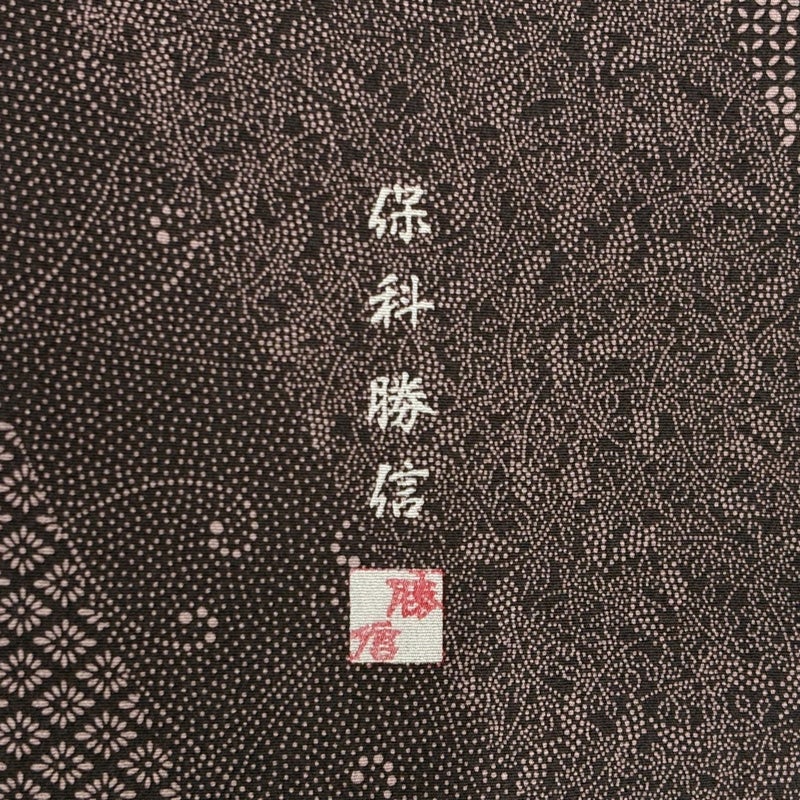 保科勝信
勝
信